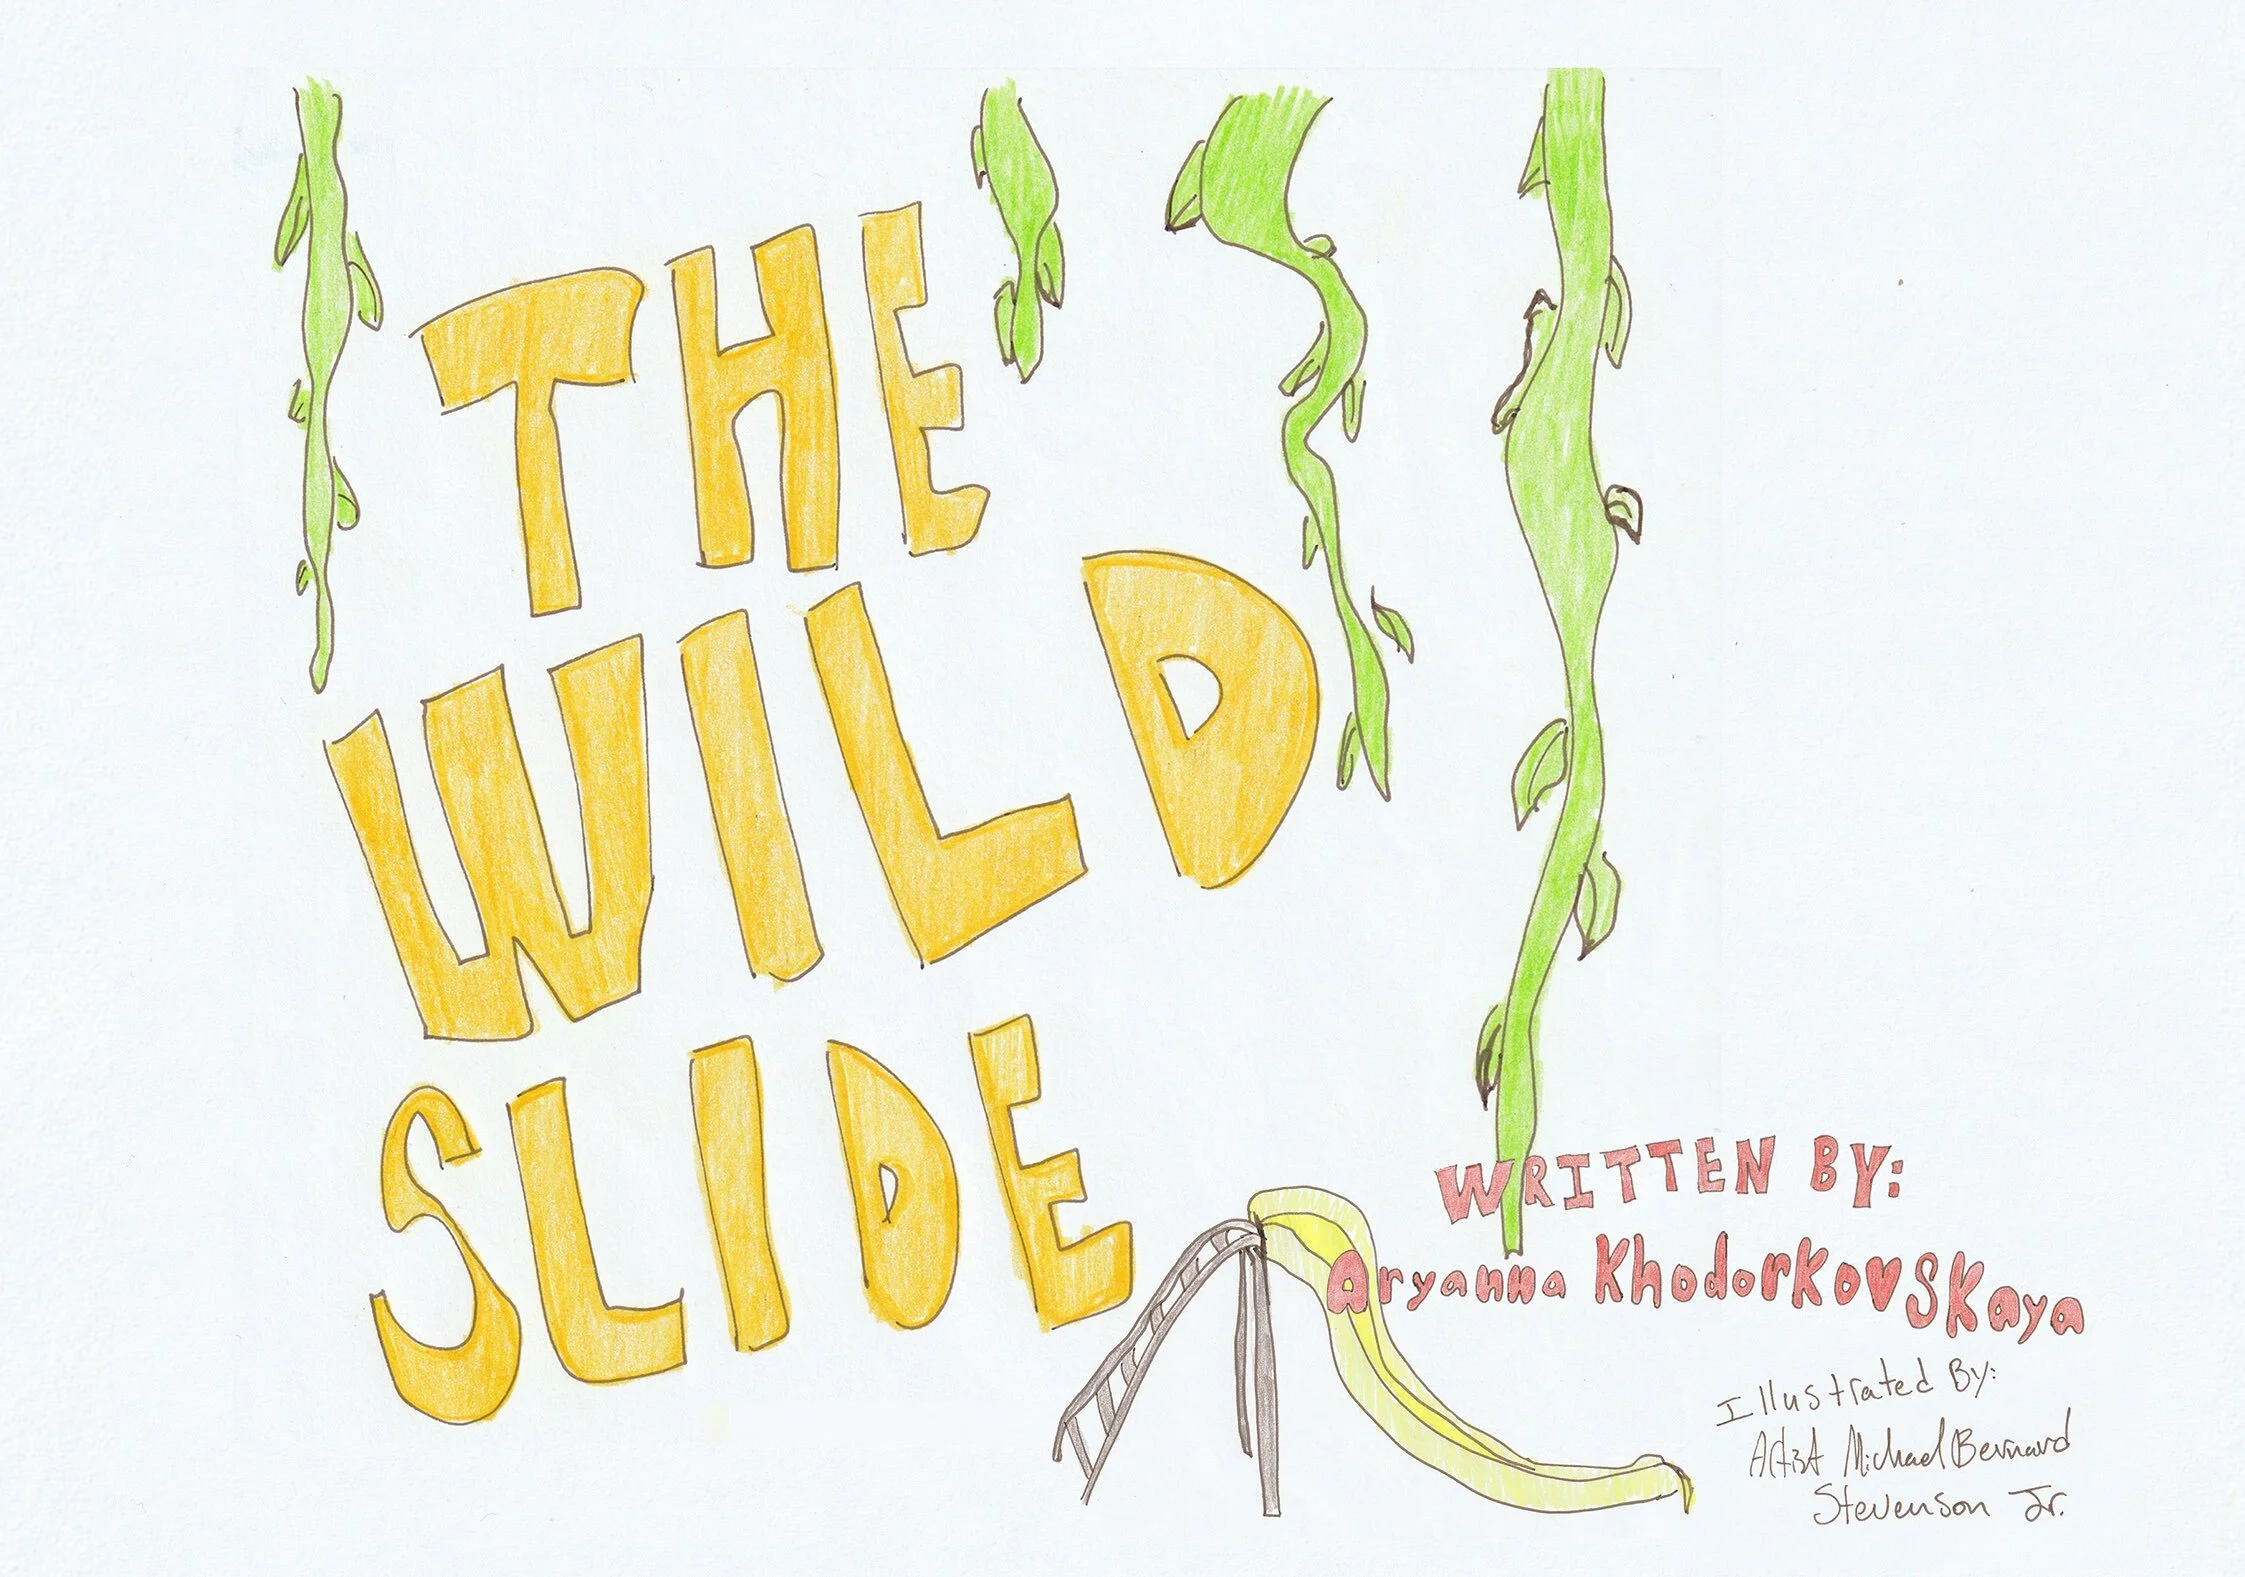 THE
WILD
SLIDE
WRITTEN BY:
Aryanna Khodorkovskaya
Illustrated By:
Artist Michael Bernard
Stevenson Jr.